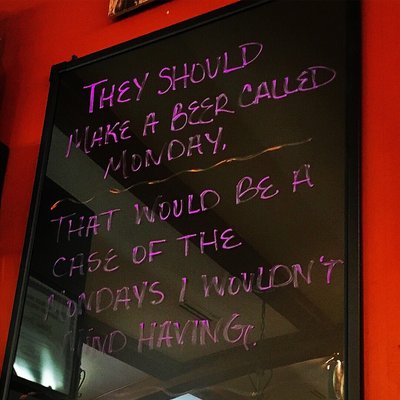 THEY SHOULD
MAKE A BEER CALLED
MONDAY.
THAT WOULD BE A
CASE OF THE
MONDAYS I WOULDN'T
MIND HAVING.